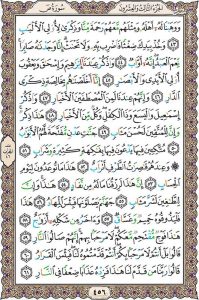 الجزء الثالث والعشرون سورة ص
وَوَهَبْنَا لَهُۥٓ أَهْلَهُۥ وَمِثْلَهُم مَّعَهُمْ رَحْمَةً مِّنَّا وَذِكْرَىٰ لِأُو۟لِى ٱلْأَلْبَٰبِ
٤٣ وَخُذْ بِيَدِكَ ضِغْثًا فَٱضْرِب بِّهِۦ وَلَا تَحْنَثْ إِنَّا وَجَدْنَٰهُ صَابِرًا
نِّعْمَ ٱلْعَبْدُ إِنَّهُۥٓ أَوَّابٌ ٤٤ وَٱذْكُرْ عِبَٰدَنَآ إِبْرَٰهِيمَ وَإِسْحَٰقَ وَيَعْقُوبَ
أُو۟لِى ٱلْأَيْدِى وَٱلْأَبْصَٰرِ ٤٥ إِنَّآ أَخْلَصْنَٰهُم بِخَالِصَةٍ ذِكْرَى
ٱلدَّارِ ٤٦ وَإِنَّهُمْ عِندَنَا لَمِنَ ٱلْمُصْطَفَيْنَ ٱلْأَخْيَارِ ٤٧ وَٱذْكُرْ
إِسْمَٰعِيلَ وَٱلْيَسَعَ وَذَا ٱلْكِفْلِ وَكُلٌّ مِّنَ ٱلْأَخْيَارِ ٤٨ هَٰذَا ذِكْرٌ
وَإِنَّ لِلْمُتَّقِينَ لَحُسْنَ مَـَٔابٍ ٤٩ جَنَّٰتِ عَدْنٍ مُّفَتَّحَةً لَّهُمُ ٱلْأَبْوَٰبُ
٥٠ مُتَّكِـِٔينَ فِيهَا يَدْعُونَ فِيهَا بِفَٰكِهَةٍ كَثِيرَةٍ وَشَرَابٍ ٥١
وَعِندَهُمْ قَٰصِرَٰتُ ٱلطَّرْفِ أَتْرَابٌ ٥٢ هَٰذَا مَا تُوعَدُونَ لِيَوْمِ
ٱلْحِسَابِ ٥٣ إِنَّ هَٰذَا لَرِزْقُنَا مَا لَهُۥ مِن نَّفَادٍ ٥٤ هَٰذَا وَإِنَّ
لِلطَّٰغِينَ لَشَرَّ مَـَٔابٍ ٥٥ جَهَنَّمَ يَصْلَوْنَهَا فَبِئْسَ ٱلْمِهَادُ ٥٦ هَٰذَا
فَلْيَذُوقُوهُ حَمِيمٌ وَغَسَّاقٌ ٥٧ وَءَاخَرُ مِن شَكْلِهِۦٓ أَزْوَٰجٌ ٥٨
هَٰذَا فَوْجٌ مُّقْتَحِمٌ مَّعَكُمْ لَا مَرْحَبًۢا بِهِمْ إِنَّهُمْ صَالُوا۟ ٱلنَّارِ ٥٩
قَالُوا۟ بَلْ أَنتُمْ لَا مَرْحَبًۢا بِكُمْ أَنتُمْ قَدَّمْتُمُوهُ لَنَا فَبِئْسَ ٱلْقَرَارُ ٦٠
قَالُوا۟ رَبَّنَا مَن قَدَّمَ لَنَا هَٰذَا فَزِدْهُ عَذَابًا ضِعْفًا فِى ٱلنَّارِ ٦١
٤٥٦